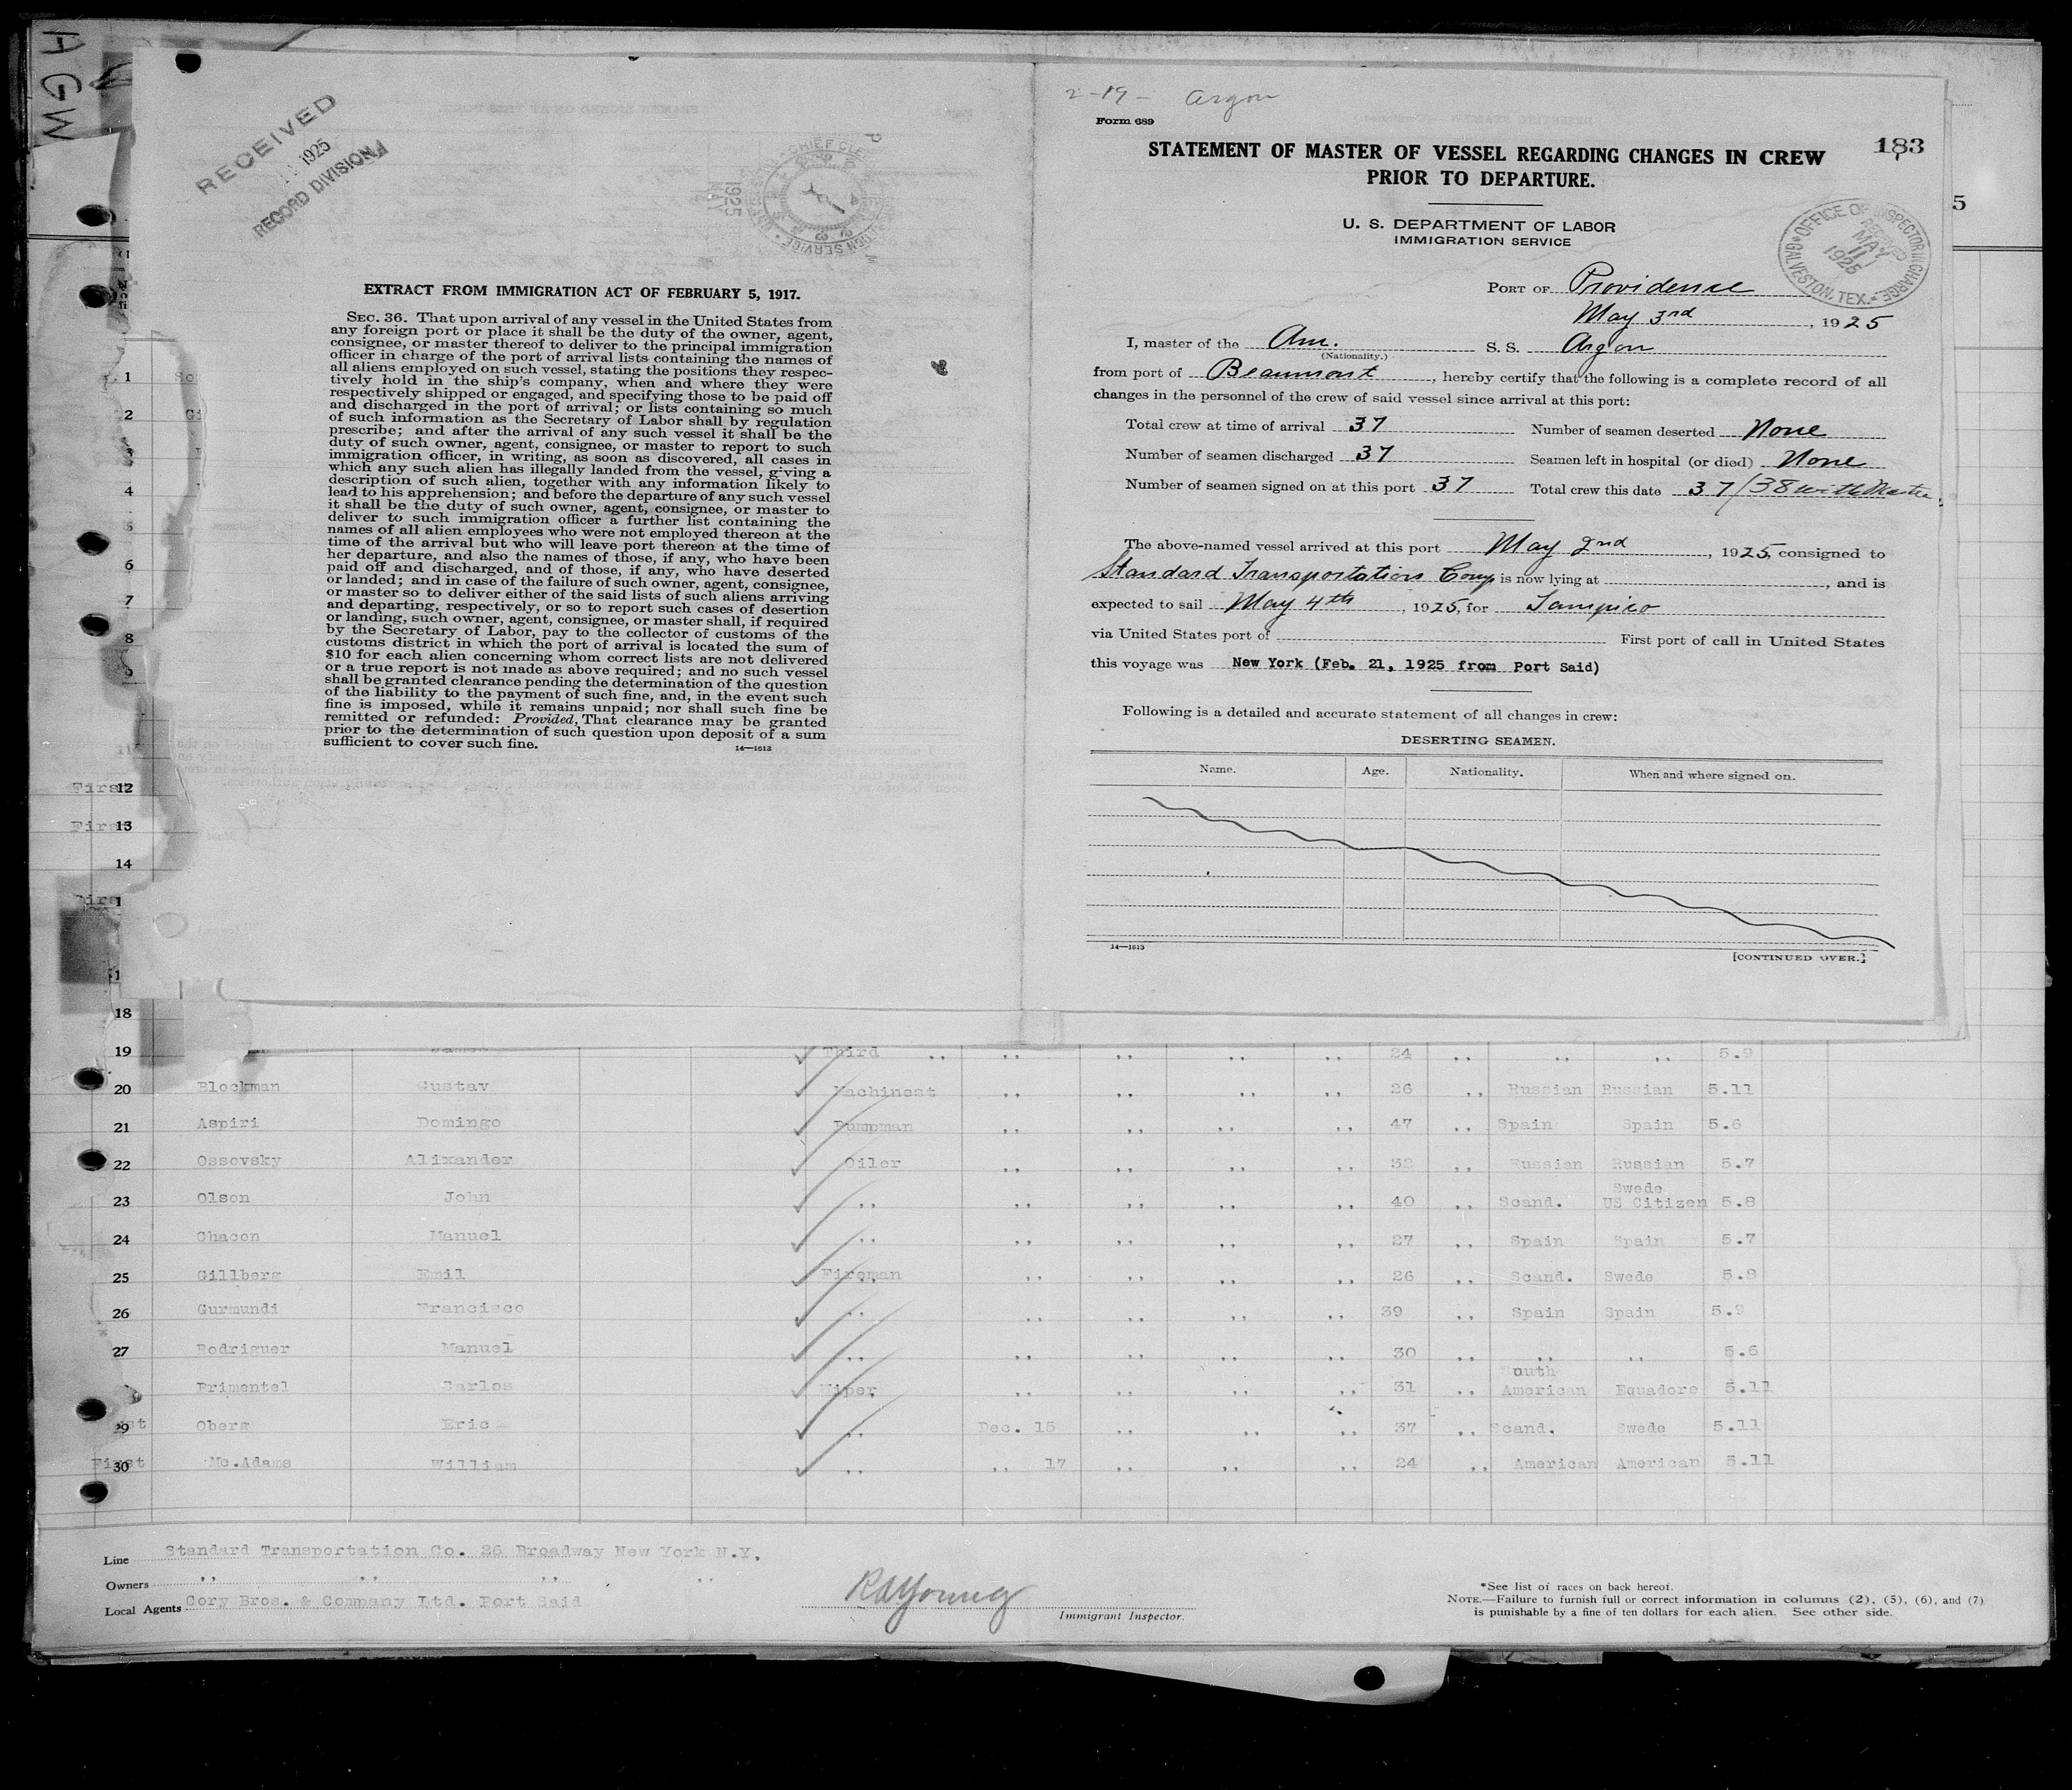 AGW
RECEIVED
1925
RECORD DIVISION
EXTRACT FROM IMMIGRATION ACT OF FEBRUARY 5, 1917.
SEC. 36. That upon arrival of any vessel in the United States from
any foreign port or place it shall be the duty of the owner, agent,
consignee, or master thereof to deliver to the principal immigration
officer in charge of the port of arrival lists containing the names of
all aliens employed on such vessel, stating the positions they respec-
tively hold in the ship's company, when and where they were
respectively shipped or engaged, and specifying those to be paid off
and discharged in the port of arrival; or lists containing so much
of such information as the Secretary of Labor shall by regulation
prescribe; and after the arrival of any such vessel it shall be the
duty of such owner, agent, consignee, or master to report to such
immigration officer, in writing, as soon as discovered, all cases in
which any such alien has illegally landed from the vessel, giving a
description of such alien, together with any information likely to
lead to his apprehension; and before the departure of any such vessel
it shall be the duty of such owner, agent, consignee, or master to
deliver to such immigration officer a further list containing the
names of all alien employees who were not employed thereon at the
time of the arrival but who will leave port thereon at the time of
her departure, and also the names of those, if any, who have been
paid off and discharged, and of those, if any, who have deserted
or landed; and in case of the failure of such owner, agent, consignee,
or master so to deliver either of the said lists of such aliens arriving
and departing, respectively, or so to report such cases of desertion
or landing, such owner, agent, consignee, or master shall, if required
by the Secretary of Labor, pay to the collector of customs of the
customs district in which the port of arrival is located the sum of
$10 for each alien concerning whom correct lists are not delivered
or a true report is not made as above required; and no such vessel
shall be granted clearance pending the determination of the question
of the liability to the payment of such fine, and, in the event such
fine is imposed, while it remains unpaid; nor shall such fine be
remitted or refunded: Provided, That clearance may be granted
prior to the determination of such question upon deposit of a sum
sufficient to cover such fine.
14—1613
2-19- Argon
Form 689
183
STATEMENT OF MASTER OF VESSEL REGARDING CHANGES IN CREW
PRIOR TO DEPARTURE.
U. S. DEPARTMENT OF LABOR
IMMIGRATION SERVICE
OFFICE OF INSPECTOR IN CHARGE
RECEIVED
MAY
11
1925
GALVESTON, TEX.
PORT OF Providence
May 3rd, 1925
I, master of the Am. S. S. Argon
(Nationality.)
from port of Beaumont, hereby certify that the following is a complete record of all
changes in the personnel of the crew of said vessel since arrival at this port:
Total crew at time of arrival 37 Number of seamen deserted None
Number of seamen discharged 37 Seamen left in hospital (or died) None
Number of seamen signed on at this port 37 Total crew this date 37/38 with Master
The above-named vessel arrived at this port May 2nd, 1925, consigned to
Standard Transportation Comp is now lying at , and is
expected to sail May 4th, 1925, for Tampico
via United States port of First port of call in United States
this voyage was New York (Feb. 21, 1925 from Port Said)
Following is a detailed and accurate statement of all changes in crew:
DESERTING SEAMEN.
Name. Age. Nationality. When and where signed on.
14—1613
[CONTINUED OVER.]
5
1
2
4
6
7
8
9
12
13
14
18
19 Third ,, ,, ,, ,, ,, 24 ,, ,, ,, 5.9
20 Blockman Gustav Machinest ,, ,, ,, ,, 26 ,, Russian Russian 5.11
21 Aspiri Domingo Pumpman ,, ,, ,, ,, 47 ,, Spain Spain 5.6
22 Ossovsky Alixander Oiler ,, ,, ,, ,, 32 ,, Russian Russian 5.7
23 Olson John ,, ,, ,, ,, ,, 40 ,, Scand. Swede US Citizen 5.8
24 Chacon Manuel ,, ,, ,, ,, ,, 27 ,, Spain Spain 5.7
25 Gillberg Emil Fireman ,, ,, ,, ,, 26 ,, Scand. Swede 5.8
26 Gurmundi Francisco ,, ,, ,, ,, ,, 39 ,, Spain Spain 5.9
27 Rodriguer Manuel ,, ,, ,, ,, ,, 30 ,, ,, ,, 5.6
Primentel Carlos Wiper ,, ,, ,, ,, 31 ,, South American Equadore 5.11
29 Oberg Eric ,, Dec. 15 ,, ,, ,, 37 ,, Scand. Swede 5.11
First 30 Mc.Adams William ,, ,, 17 ,, ,, ,, 24 ,, American American 5.11
Line Standard Transportation Co. 26 Broadway New York N.Y.
Owners ,, ,, ,, ,,
Local Agents Cory Bros. & Company Ltd. Port Said
RAYoung
Immigrant Inspector.
*See list of races on back hereof.
NOTE.—Failure to furnish full or correct information in columns (2), (5), (6), and (7)
is punishable by a fine of ten dollars for each alien. See other side.